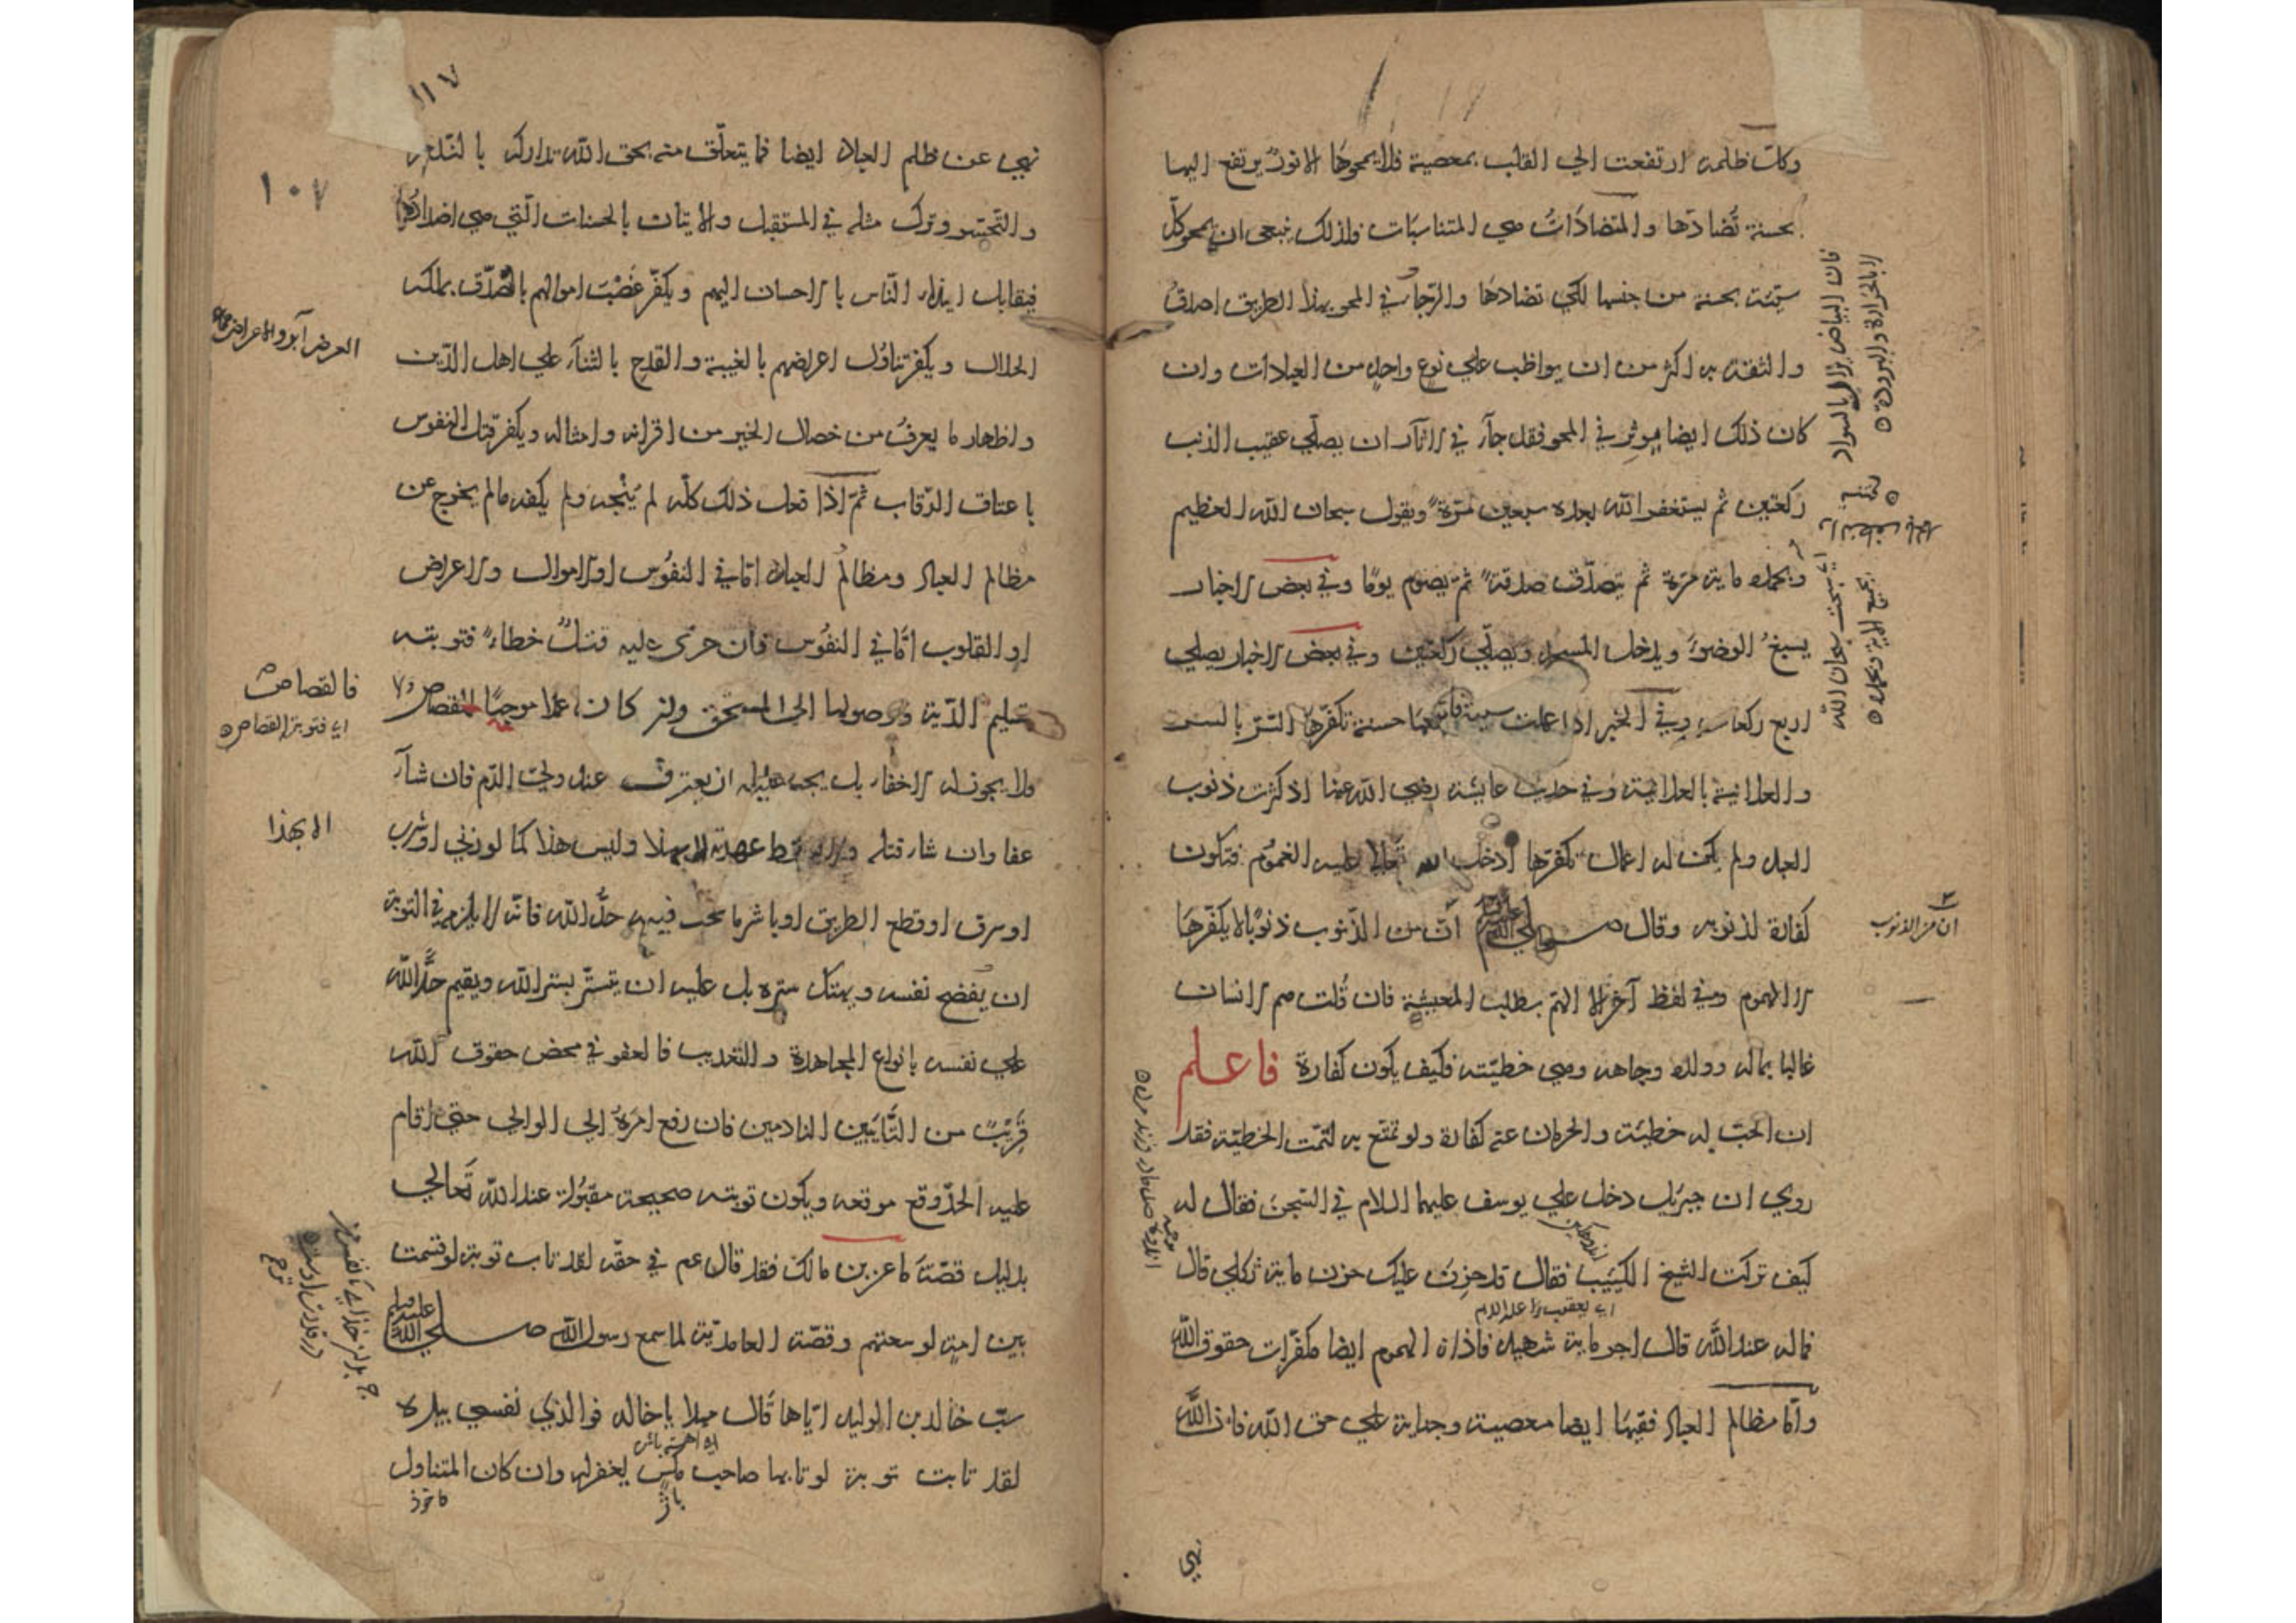 وكل ظلمة ارتفعت الى القلب بمعصية فلا يمحوها الا نور يرتفع اليها
بحسنة تضادها والمتضادات هي المتناسبات فلذلك ينبغي ان يمحو كل
سيئة بحسنة من جنسها لكي تضادها والرجاء في المحو بهذا الطريق اصدق
والثقة به اكثر من ان يواظب على نوع واحد من العبادات وان
كان ذلك ايضا موثر في المحو فقد جآء في الاثار ان يصلّي عقيب الذنب
ركعتين ثم يستغفر الله بعده سبعين مَرّةً ويقول سبحان الله العظيم
وبحمده ماية مرّة ثم يتصدّق صدقةً ثم يصوم يومًا وفي بعض الاخبار
يسبغ الوضوءَ ويدخل المسجد ويصلّي ركعتين وفي بعض الاخبار يصلي
اربع ركعات وفي الخبر اذا عملت سيئة فاتبعها حسنة تكفّرها السّرّ بالسر
والعلانية بالعلانية وفي حديث عايشة رضي الله عنها اذ كثرت ذنوب
العبد ولم يكن له اعمال تكفّرها ادخل الله تعالى عليه الغموم فتكون
كفارة لذنوبه وقال صلى الله عليه وسلم انّ من الذّنوب ذنوبًا لا يكفّرها
الا الهموم وفي لفظ آخر الا الهمّ بطلب المعيشة فان قُلت هم الانسان
غالبا بماله وولده وجاهه وهي خطيّته فكيف يكون كفارة فاعلم
ان الحبّ له خطيئة والحرمان عنه كفارة ولو تمتع به لتمّت الخطيّة فقد
روي ان جبريل دخل على يوسف عليهما السلام في السّجن فقال له
كيف تركت الشيخ الكيئب فقال قد حزن عليك حزن ماية ثكلى قال
اي يعقوب عليه السلام
فما له عند الله قال اجر ماية شهيد فاذا الهموم ايضا مكفّرات حقوق الله
وامّا مظالم العباد ففيها ايضا معصية وجناية على حق الله فان الله
نهي
فان البياض يزال بالسواد
لا بالحرارة والبرودة
ان من الذنوب
١١٧
١٠٧
نهي عن ظلم العباد ايضا فما يتعلّق منه بحق الله تداركه بالندم
والتحسّر وترك مثله في المستقبل والاتيان بالحسنات الّتي هي اضدادها
فيقابل ايذاء النّاس بالاحسان اليهم ويكفّر غصب اموالهم بالتصدّق بملكه
الحلال ويكفر تناوُل اعراضهم بالغيبة والقدح بالثنآء على اهل الدّين
واظهار ما يعرف من خصال الخير من اقرانه وامثاله ويكفر قتل النفوس
باعتاق الرّقاب ثمّ اذا فعل ذلك كلّه لم يُنجه ولم يكفه ما لم يخرج عن
مظالم العباد ومظالم العباد امّا في النفوس او الاموال والاعراض
او القلوب امّا في النفُوس فان جرى عليه قتلٌ خطاءً فتوبته
تسليم الدّية ووصولها الى المستحق وان كان عمدا موجبًا للقصاص
ولا يجوز له الاخفاء بل يجب عليه ان يعترف عند وليّ الدّم فان شآء
عفا وان شاء قتله ولا يسقط عهدته الا بهذا وليس هذا كما لو زنى او شرب
او سرق او قطع الطريق او باشر ما يجب فيه حدّ الله فانّه لا يلزمه في التوبة
ان يُفضح نفسه ويهتك ستره بل عليه ان يتستّر بستر الله ويقيم حدَّ الله
على نفسه بانواع المجاهدة والتعذيب فالعفو في محض حقوق الله
قريبٌ من التّايبين النادمين فان رفع امرهُ الى الوالي حتى اقام
عليه الحدّ وقع موقعه ويكون توبته صحيحة مقبُولة عند الله تَعالى
بدليل قصّة ماعز بن مالك فقد قال عم في حقّه لقد تاب توبة لو قسمت
بين امة لوسعتهم وقصّة الغامديّة لما سمع رسول الله صلى الله عليه وسلم
سبّ خالد بن الوليد ايّاها قال مهلا يا خالد فوالذي نفسي بيده
لقد تابت توبة لو تابها صاحب مكس لغفر له وان كان المتناول
العرض آبرو والاعراض جماعه
فالقصاص
اي فتوبة القصاص
الا بهذا